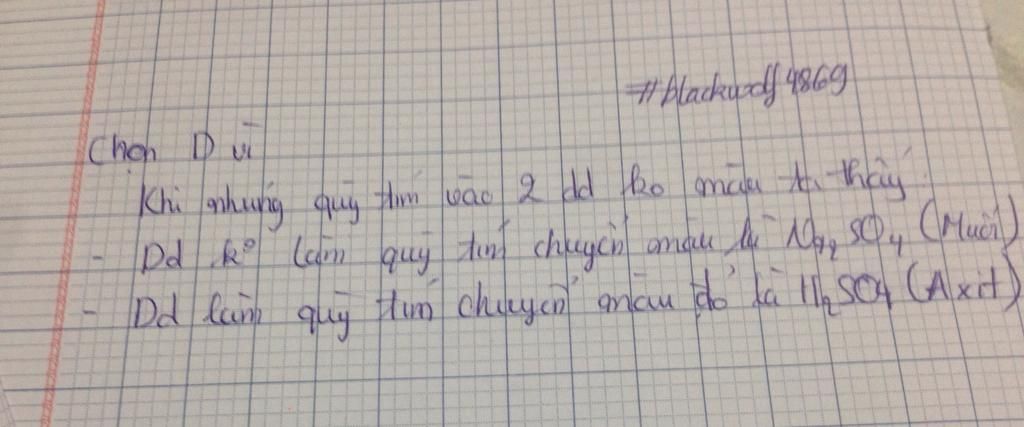 #blackwolf4869
Chọn D vì
Khi nhúng quỳ tím vào 2 dd ko màu ta thấy:
- Dd ko làm quỳ tím chuyển màu là Na2SO4 (Muối)
- Dd làm quỳ tím chuyển màu đỏ là H2SO4 (Axit)